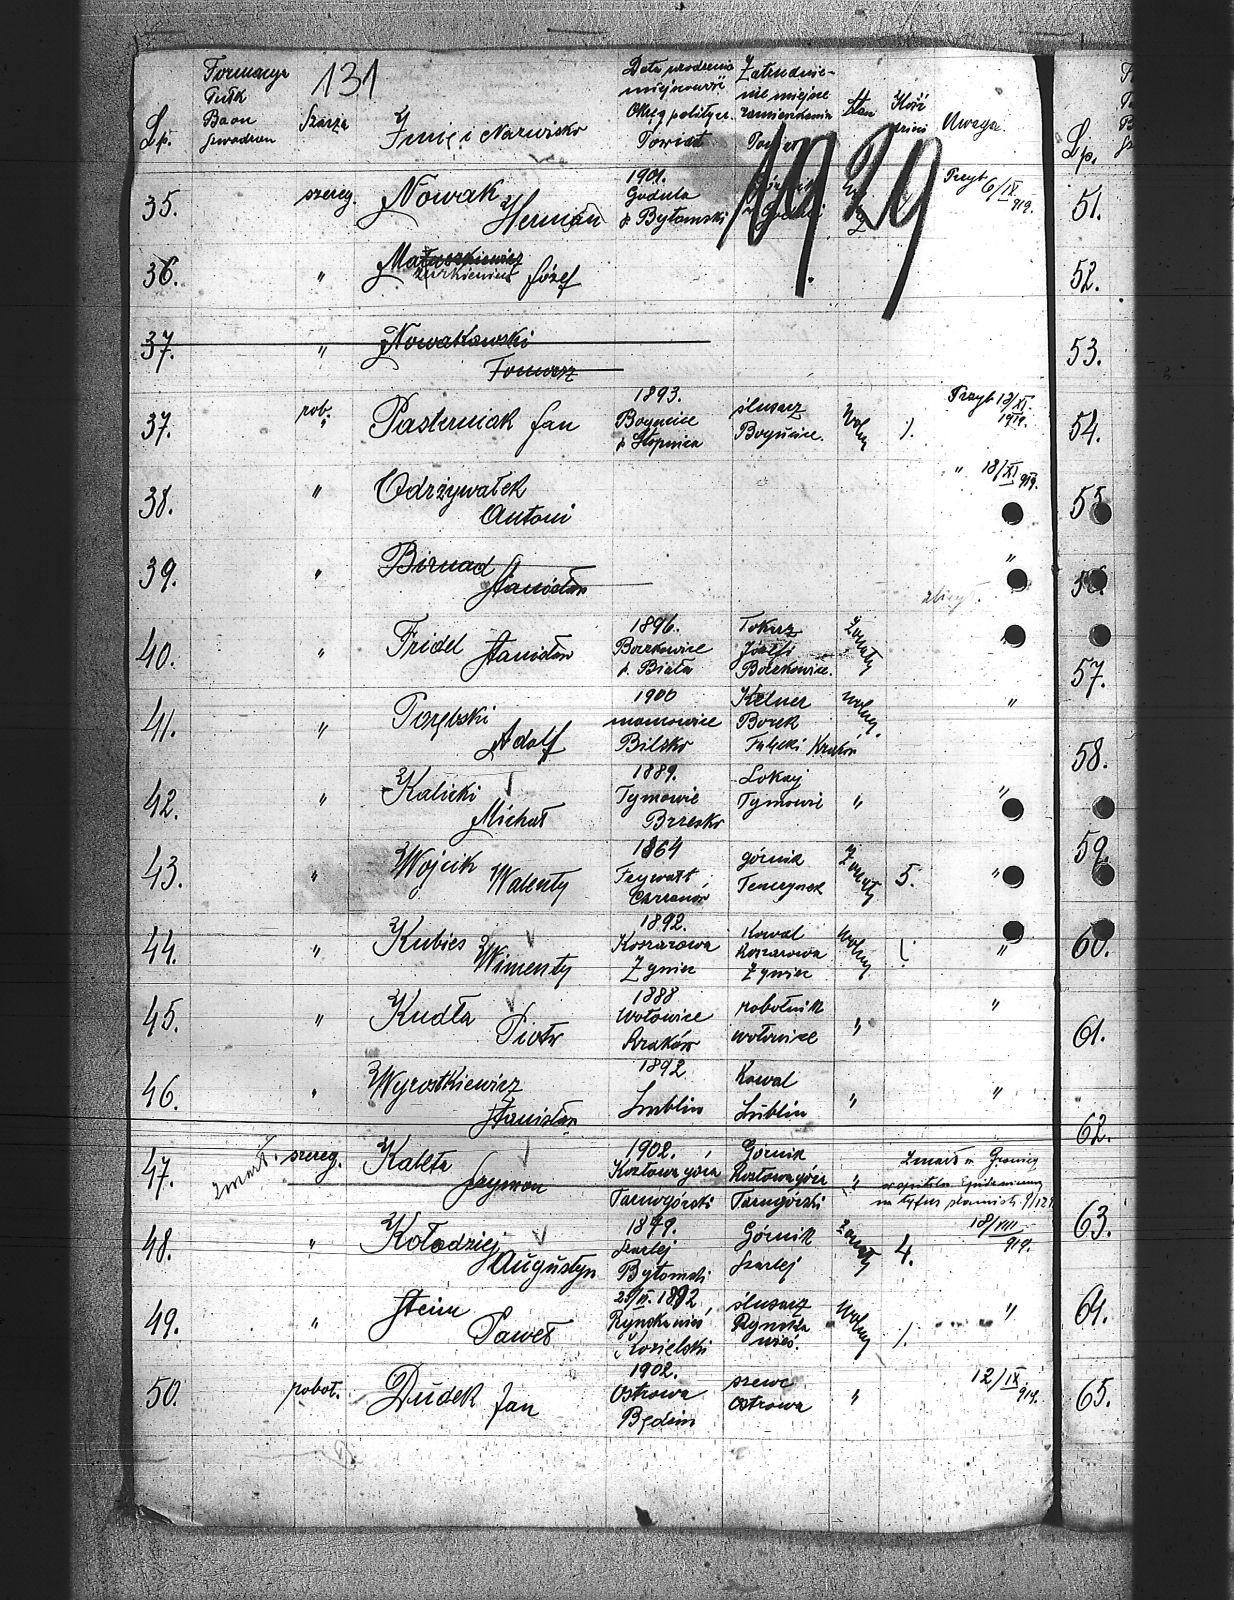 131
Lp.
Formacya
Pułk
Baon
Szarża
Imię i Nazwisko
Data urodzenia
miejscowość
Okręg polityc.
Powiat
Zatrudnie-
nie miejsce
zamieszkania
Powiat
Stan
Ilość
dzieci
Uwaga.
1929
35. szereg. Nowak
Herman
1901.
Godula
p Bytomski
Przyb 6/IX 919.
36. " Józef
37. " Nowakowski
Tomasz
37. rob. Pasterniak Jan
1893.
p Stopnica
ślusarz
wolny
Przyb 12/XI.
1919.
38. " Odrzywałek
Antoni
" 18/XI 919.
39. " Birnad
Stanisław
"
40. " Fridel Stanisław
1896.
Borzkowice
p. Biała
Tokarz
Józefi
Borzkowice.
żonaty
41. " Porębski
Adolf
1900
Bilsko
Kelner
Borek
Fałęcki Kraków
wolny.
"
42. " Kalicki
Michał
1889.
Tymowie
Brzesko
Lokaj
Tymowie
"
"
43. " Wojcik Walenty
1864
Frywałt
Chrzanów
górnik
Tenczynek
Żonaty
5.
"
44. " Kubies
Wimenty
1892.
Koszarowa
Żywiec
Kowal
Koszarowa
Żywiec
wolny
"
45. " Kudła
Piotr
1888
Wołowice
Kraków
robotnik
wołowice
"
"
46. " Wyrostkiewicz
Stanisław
1892
Lublin
Kowal
Lublin
"
"
47. zmarł. szereg. Kaleta
Szymon
1902.
Kozłowagóra
Tarnogórski
Górnik
Kozłowagóra
Tarnogórski
"
Zmarł w Granicy
w szpitalu Epidemicznym
na tyfus plamisty
48. " Kołodziej
Augustyn
Szarlej
Bytomski
Górnik
Szarlej
Żonaty
4.
18/VIII
919.
49. " Stein
Paweł
Kozielski
ślusarz
wieś.
Wolny
"
50. robot. Dudek Jan
1902.
Ostrowa
Będzin
szewc
Ostrowa
"
12/IX 919.
Lp.
51.
52.
53.
54.
55
56.
57.
58.
59.
60.
61.
62.
63.
64.
65.